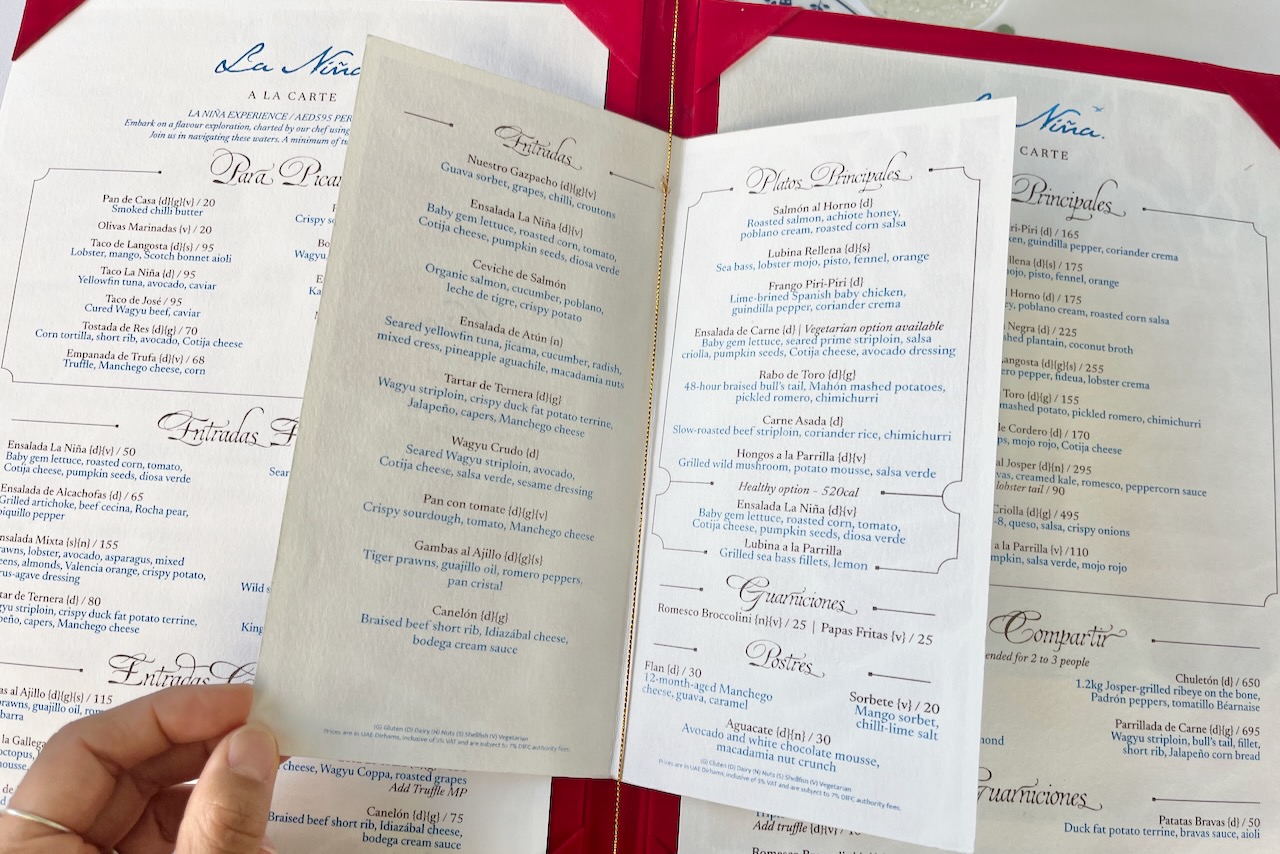 La Niña
A LA CARTE
LA NIÑA EXPERIENCE / AED595 PER
Embark on a flavour exploration, charted by our chef using
Join us in navigating these waters. A minimum of
Para Picar
Pan de Casa {d}{g}{v} / 20
Smoked chilli butter
Olivas Marinadas {v} / 20
Taco de Langosta {d}{s} / 95
Lobster, mango, Scotch bonnet aioli
Taco La Niña {d} / 95
Yellowfin tuna, avocado, caviar
Taco de José / 95
Cured Wagyu beef, caviar
Tostada de Res {d}{g} / 70
Corn tortilla, short rib, avocado, Cotija cheese
Empanada de Trufa {d}{v} / 68
Truffle, Manchego cheese, corn
Crispy
Entradas
Ensalada La Niña {d}{v} / 50
Baby gem lettuce, roasted corn, tomato,
Cotija cheese, pumpkin seeds, diosa verde
Ensalada de Alcachofas {d} / 65
Grilled artichoke, beef cecina, Rocha pear,
piquillo pepper
Mixta {s}{n} / 155
lobster, avocado, asparagus, mixed
almonds, Valencia orange, crispy potato,
dressing
de Ternera {d} / 80
striploin, crispy duck fat potato terrine,
capers, Manchego cheese
Wild
King
Entradas
al Ajillo {d}{g}{s} / 115
guajillo oil,
la Gallega
cheese, Wagyu Coppa, roasted grapes
Add Truffle MP
Canelón {d}{g} / 75
Braised beef short rib, Idiazábal cheese,
bodega cream sauce
Entradas
Nuestro Gazpacho {d}{g}{v}
Guava sorbet, grapes, chilli, croutons
Ensalada La Niña {d}{v}
Baby gem lettuce, roasted corn, tomato,
Cotija cheese, pumpkin seeds, diosa verde
Ceviche de Salmón
Organic salmon, cucumber, poblano,
leche de tigre, crispy potato
Ensalada de Atún {n}
Seared yellowfin tuna, jicama, cucumber, radish,
mixed cress, pineapple aguachile, macadamia nuts
Tartar de Ternera {d}{g}
Wagyu striploin, crispy duck fat potato terrine,
Jalapeño, capers, Manchego cheese
Wagyu Crudo {d}
Seared Wagyu striploin, avocado,
Cotija cheese, salsa verde, sesame dressing
Pan con tomate {d}{g}{v}
Crispy sourdough, tomato, Manchego cheese
Gambas al Ajillo {d}{g}{s}
Tiger prawns, guajillo oil, romero peppers,
pan cristal
Canelón {d}{g}
Braised beef short rib, Idiazábal cheese,
bodega cream sauce
(G) Gluten (D) Dairy (N) Nuts (S) Shellfish (V) Vegetarian
Prices are in UAE Dirhams, inclusive of 5% VAT and are subject to 7% DIFC authority fees.
Platos Principales
Salmón al Horno {d}
Roasted salmon, achiote honey,
poblano cream, roasted corn salsa
Lubina Rellena {d}{s}
Sea bass, lobster mojo, pisto, fennel, orange
Frango Piri-Piri {d}
Lime-brined Spanish baby chicken,
guindilla pepper, coriander crema
Ensalada de Carne {d} | Vegetarian option available
Baby gem lettuce, seared prime striploin, salsa
criolla, pumpkin seeds, Cotija cheese, avocado dressing
Rabo de Toro {d}{g}
48-hour braised bull's tail, Mahón mashed potatoes,
pickled romero, chimichurri
Carne Asada {d}
Slow-roasted beef striploin, coriander rice, chimichurri
Hongos a la Parrilla {d}{v}
Grilled wild mushroom, potato mousse, salsa verde
Healthy option - 520cal
Ensalada La Niña {d}{v}
Baby gem lettuce, roasted corn, tomato,
Cotija cheese, pumpkin seeds, diosa verde
Lubina a la Parrilla
Grilled sea bass fillets, lemon
Guarniciones
Romesco Broccolini {n}{v} / 25 | Papas Fritas {v} / 25
Postres
Flan {d} / 30
12-month-aged Manchego
cheese, guava, caramel
Sorbete {v} / 20
Mango sorbet,
chilli-lime salt
Aguacate {d}{n} / 30
Avocado and white chocolate mousse,
macadamia nut crunch
(G) Gluten (D) Dairy (N) Nuts (S) Shellfish (V) Vegetarian
Prices are in UAE Dirhams, inclusive of 5% VAT and are subject to 7% DIFC authority fees.
Niña.
CARTE
Principales
Piri-Piri {d} / 165
guindilla pepper, coriander crema
{d}{s} / 175
mojo, pisto, fennel, orange
Horno {d} / 175
poblano cream, roasted corn salsa
Negra {d} / 225
plantain, coconut broth
{d}{g}{s} / 255
pepper, fideua, lobster crema
Toro {d}{g} / 155
mashed potato, pickled romero, chimichurri
de Cordero {d} / 170
mojo rojo, Cotija cheese
al Josper {d}{n} / 295
creamed kale, romesco, peppercorn sauce
lobster tail / 90
Criolla {d}{g} / 495
queso, salsa, crispy onions
a la Parrilla {v} /110
salsa verde, mojo rojo
Compartir
for 2 to 3 people
Chuletón {d} / 650
1.2kg Josper-grilled ribeye on the bone,
Padrón peppers, tomatillo Béarnaise
Parrillada de Carne {d}{g} / 695
Wagyu striploin, bull's tail, fillet,
short rib, Jalapeño corn bread
Guarniciones
Patatas Bravas {d} / 50
Duck fat potato terrine, bravas sauce, aioli
Add truffle {d}{v} /